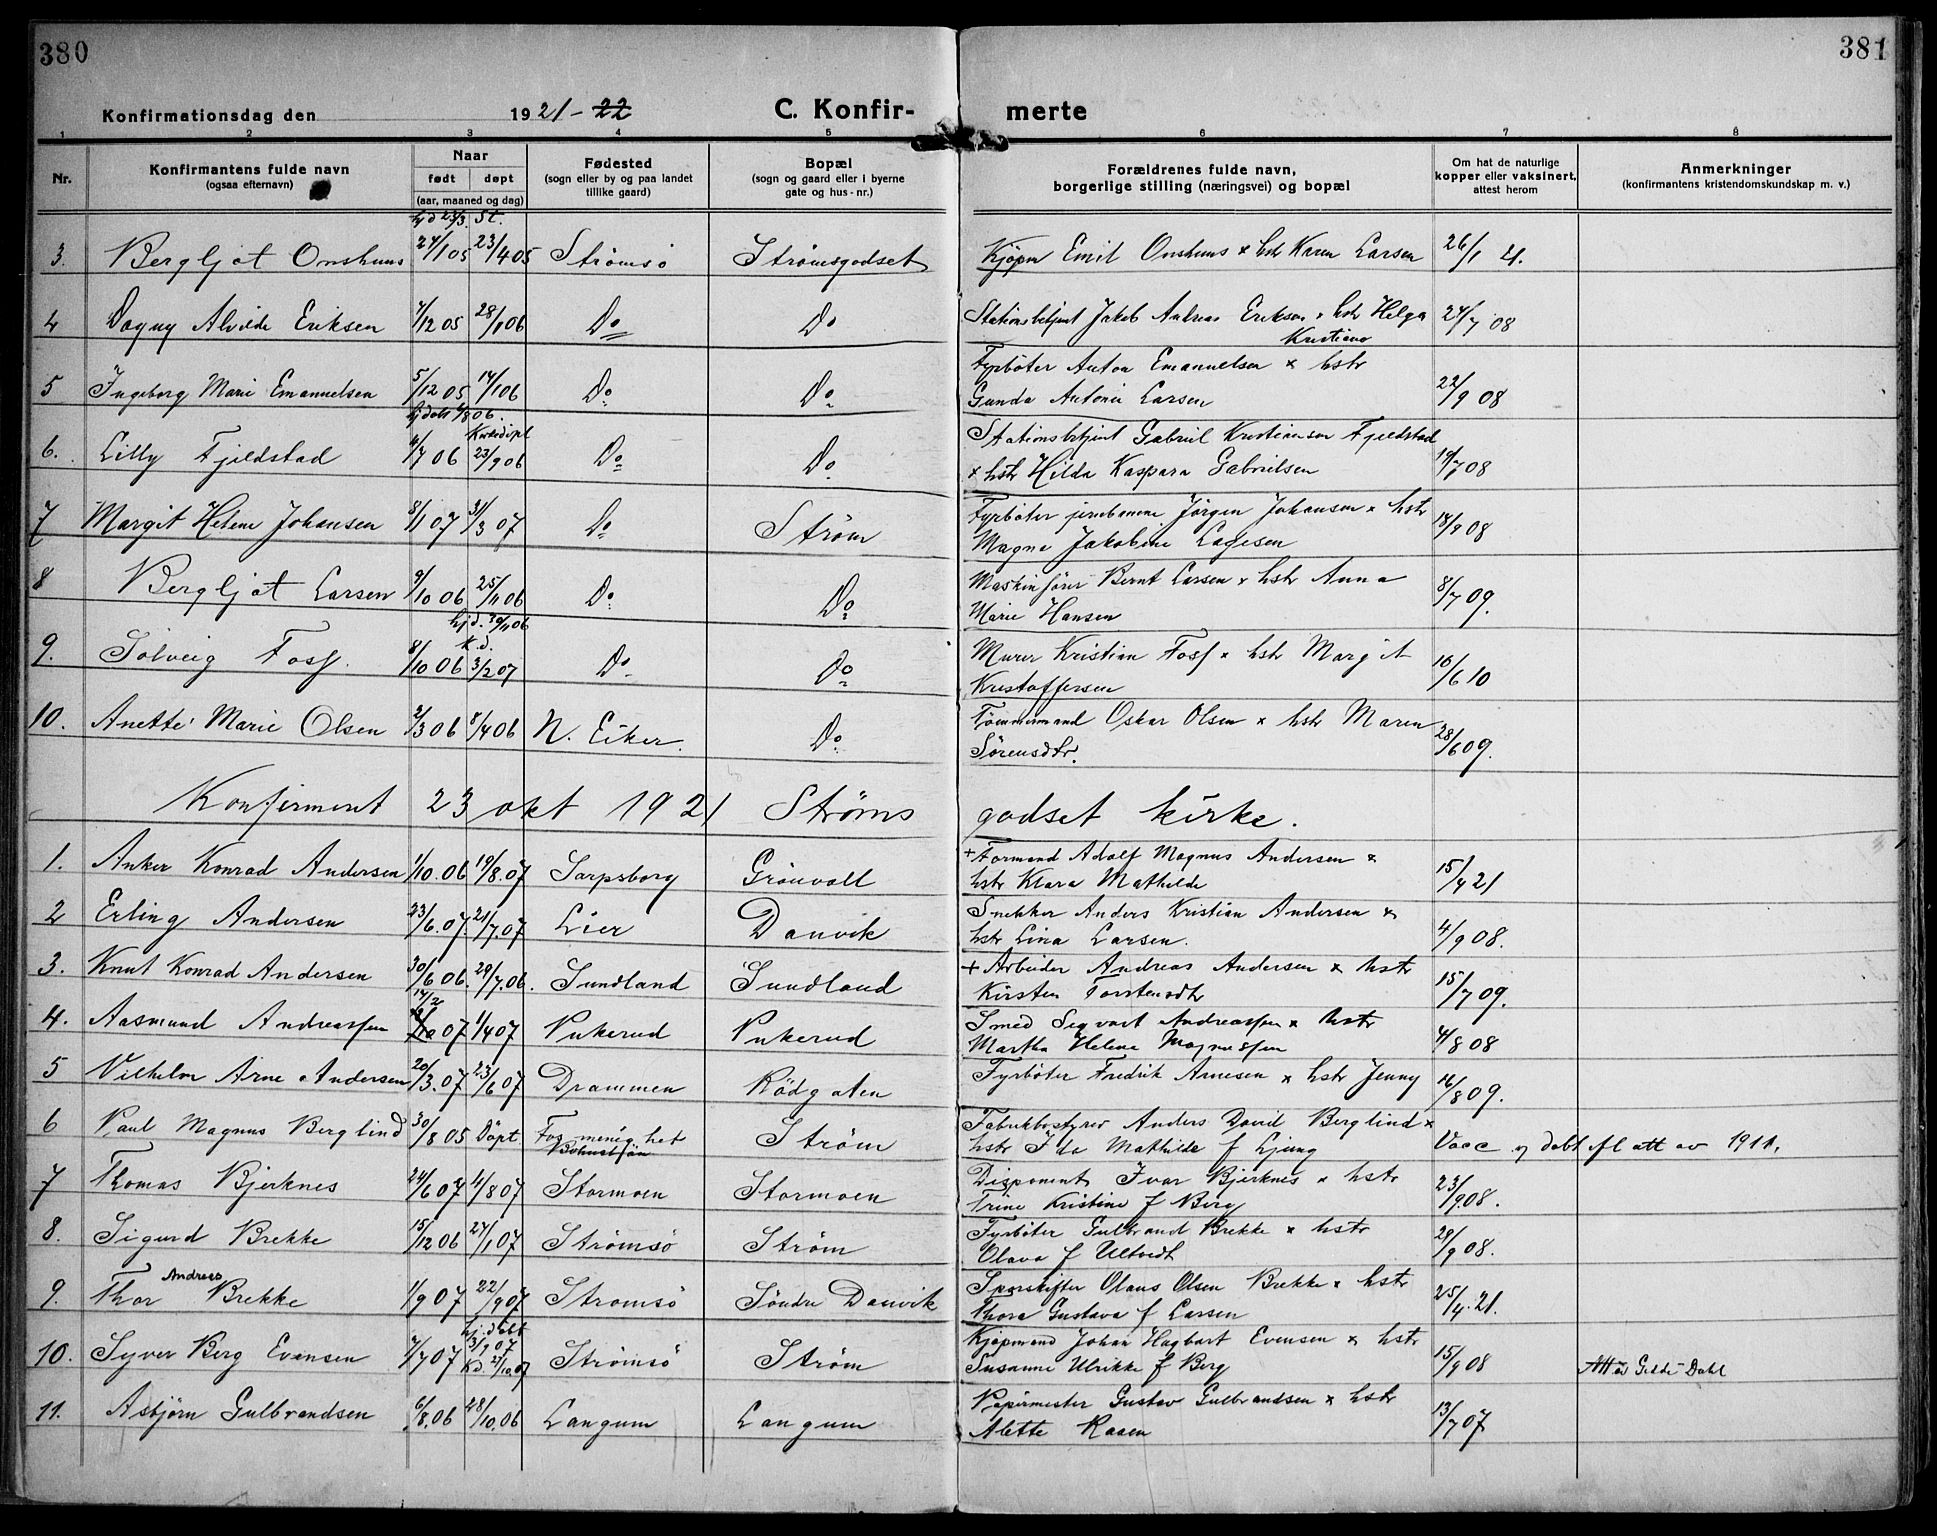 380
381
Konfirmationsdag den 1921-22 C. Konfirmerte
1 2 3 4 5 6 7 8
Nr. Konfirmantens fulde navn (ogsaa efternavn) Naar født døpt (aar, maaned og dag) Fødested (sogn eller by og paa landet tillike gaard) Bopæl (sogn og gaard eller i byerne gate og hus-nr.) Forældrenes fulde navn, borgerlige stilling (næringsvei) og bopæl Om hat de naturlige kopper eller vaksinert, attest herom Anmerkninger (konfirmantens kristendomskundskap m. v.)
hjd 25/3. St.
3. Bergljot Onshuus 24/1 05 23/4 05 Strømsö Strømsgodset Kjøpm Emil Onshuus x hstr Karen Larsen 26/1 21.
4 Dagny Alvilde Eriksen 7/12 05 28/1 06 Do Do Stationsbetjent Jakob Andreas Eriksen x hstr Helga Kristiane 24/7 08
5 Ingeborg Marie Emanuelsen 5/12 05 14/1 06 Do Do Fyrböter Anton Emanuelsen x hstr
Gunda Antonie Larsen 22/9 08
hjdøbt 6/8 06. Kirkedöpt
6. Lilly Fjeldstad 4/7 06 23/9 06 Do Do Stationsbetjent Gabriel Kristiansen Fjeldstad
x hstr Hilda Kaspara Gabrielsen 19/7 08
7 Margit Helene Johansen 8/1 07 31/3 07 Do Ström Fyrböter jernbanene Jörgen Johansen x hstr
Magna Jakobine Lagesen 18/9 08
8 Bergljot Larsen 9/10 06 25/11 06 Do Do Maskinförer Bernt Larsen x hstr Anna
Marie Hansen 8/7 09.
hjd. 30/11 06 K.d.
9. Solveig Foss. 8/10 06 3/2 07 Do Do Murer Kristian Foss x hstr Margit
Kristoffersen 16/6 10
10. Anette Marie Olsen 2/3 06 8/4 06 N. Eiker. Do Tömmermand Oskar Olsen x hstr Maren
Sörensdtr. 28/6 09.
Konfirment 23 okt 1921 Strømsgodset kirke.
1. Anker Konrad Andersen 1/10.06 19/8.07 Sarpsborg Grönvoll + Formand Adolf Magnus Andersen x
hstr Klara Mathilde 15/4 21
2 Erling Andersen 23/6.07. 21/7.07 Lier Danvik Snekker Anders Kristian Andersen x
hstr Lina Larsen. 4/9 08.
3. Knut Konrad Andersen 30/6 06. 29/7.06. Sundland Sundland + Arbeider Andreas Andersen x hstr
Kirsten Torstensdtr 15/7 09.
4. Aasmund Andreassen 17/2 07 1/4 07 Pukerud Pukerud Smed Sigvart Andreassen x hstr
Martha Helene Magnussen 4/8 08
5 Vilhelm Arne Andersen 20/3.07 23/6 07 Drammen Rödgaten Fyrböter Fredrik Arnesen x hstr Jenny 16/8 09.
6 Paul Magnus Berglind 30/8 05 Döpt. Strøm Fabrikbestyrer Anders David Berglind x
hstr Ida Mathilde f Ljung Vacc og døbt fl att av 1911.
7 Thomas Bjerknes 24/6 07 11/8 07 Stormoen Stormoen Disponent Ivar Bjerknes x hstr
Trine Kristine f Berg 23/9 08.
8. Sigurd Brekke 15/12 06 27/1 07 Strømsö Strøm Fyrböter Gulbrand Brekke x hstr
Olava f Ultvedt 29/9 08.
9. Thor Andreas Brekke 1/9 07 22/9 07 Strømsö Söndre Danvik Sporskifter Olaus Olsen Brekke x hstr
Thora Gustava f Larsen 25/4.21.
hj.døbt
10. Syver Berg Evensen 7/7 07 31/7 07 Kd. 27/10.07 Strømsö Strøm Kjøpmand Johan Hagbart Evensen x hstr
Susanne Ulrikke f Berg 15/9 08 Att Gilde Dahl
11. Asbjörn Gulbrandsen 6/8.06 28/10.06 Langum Langum Papirmester Gustav Gulbrandsen x hstr
Alette Raaen 13/7 07